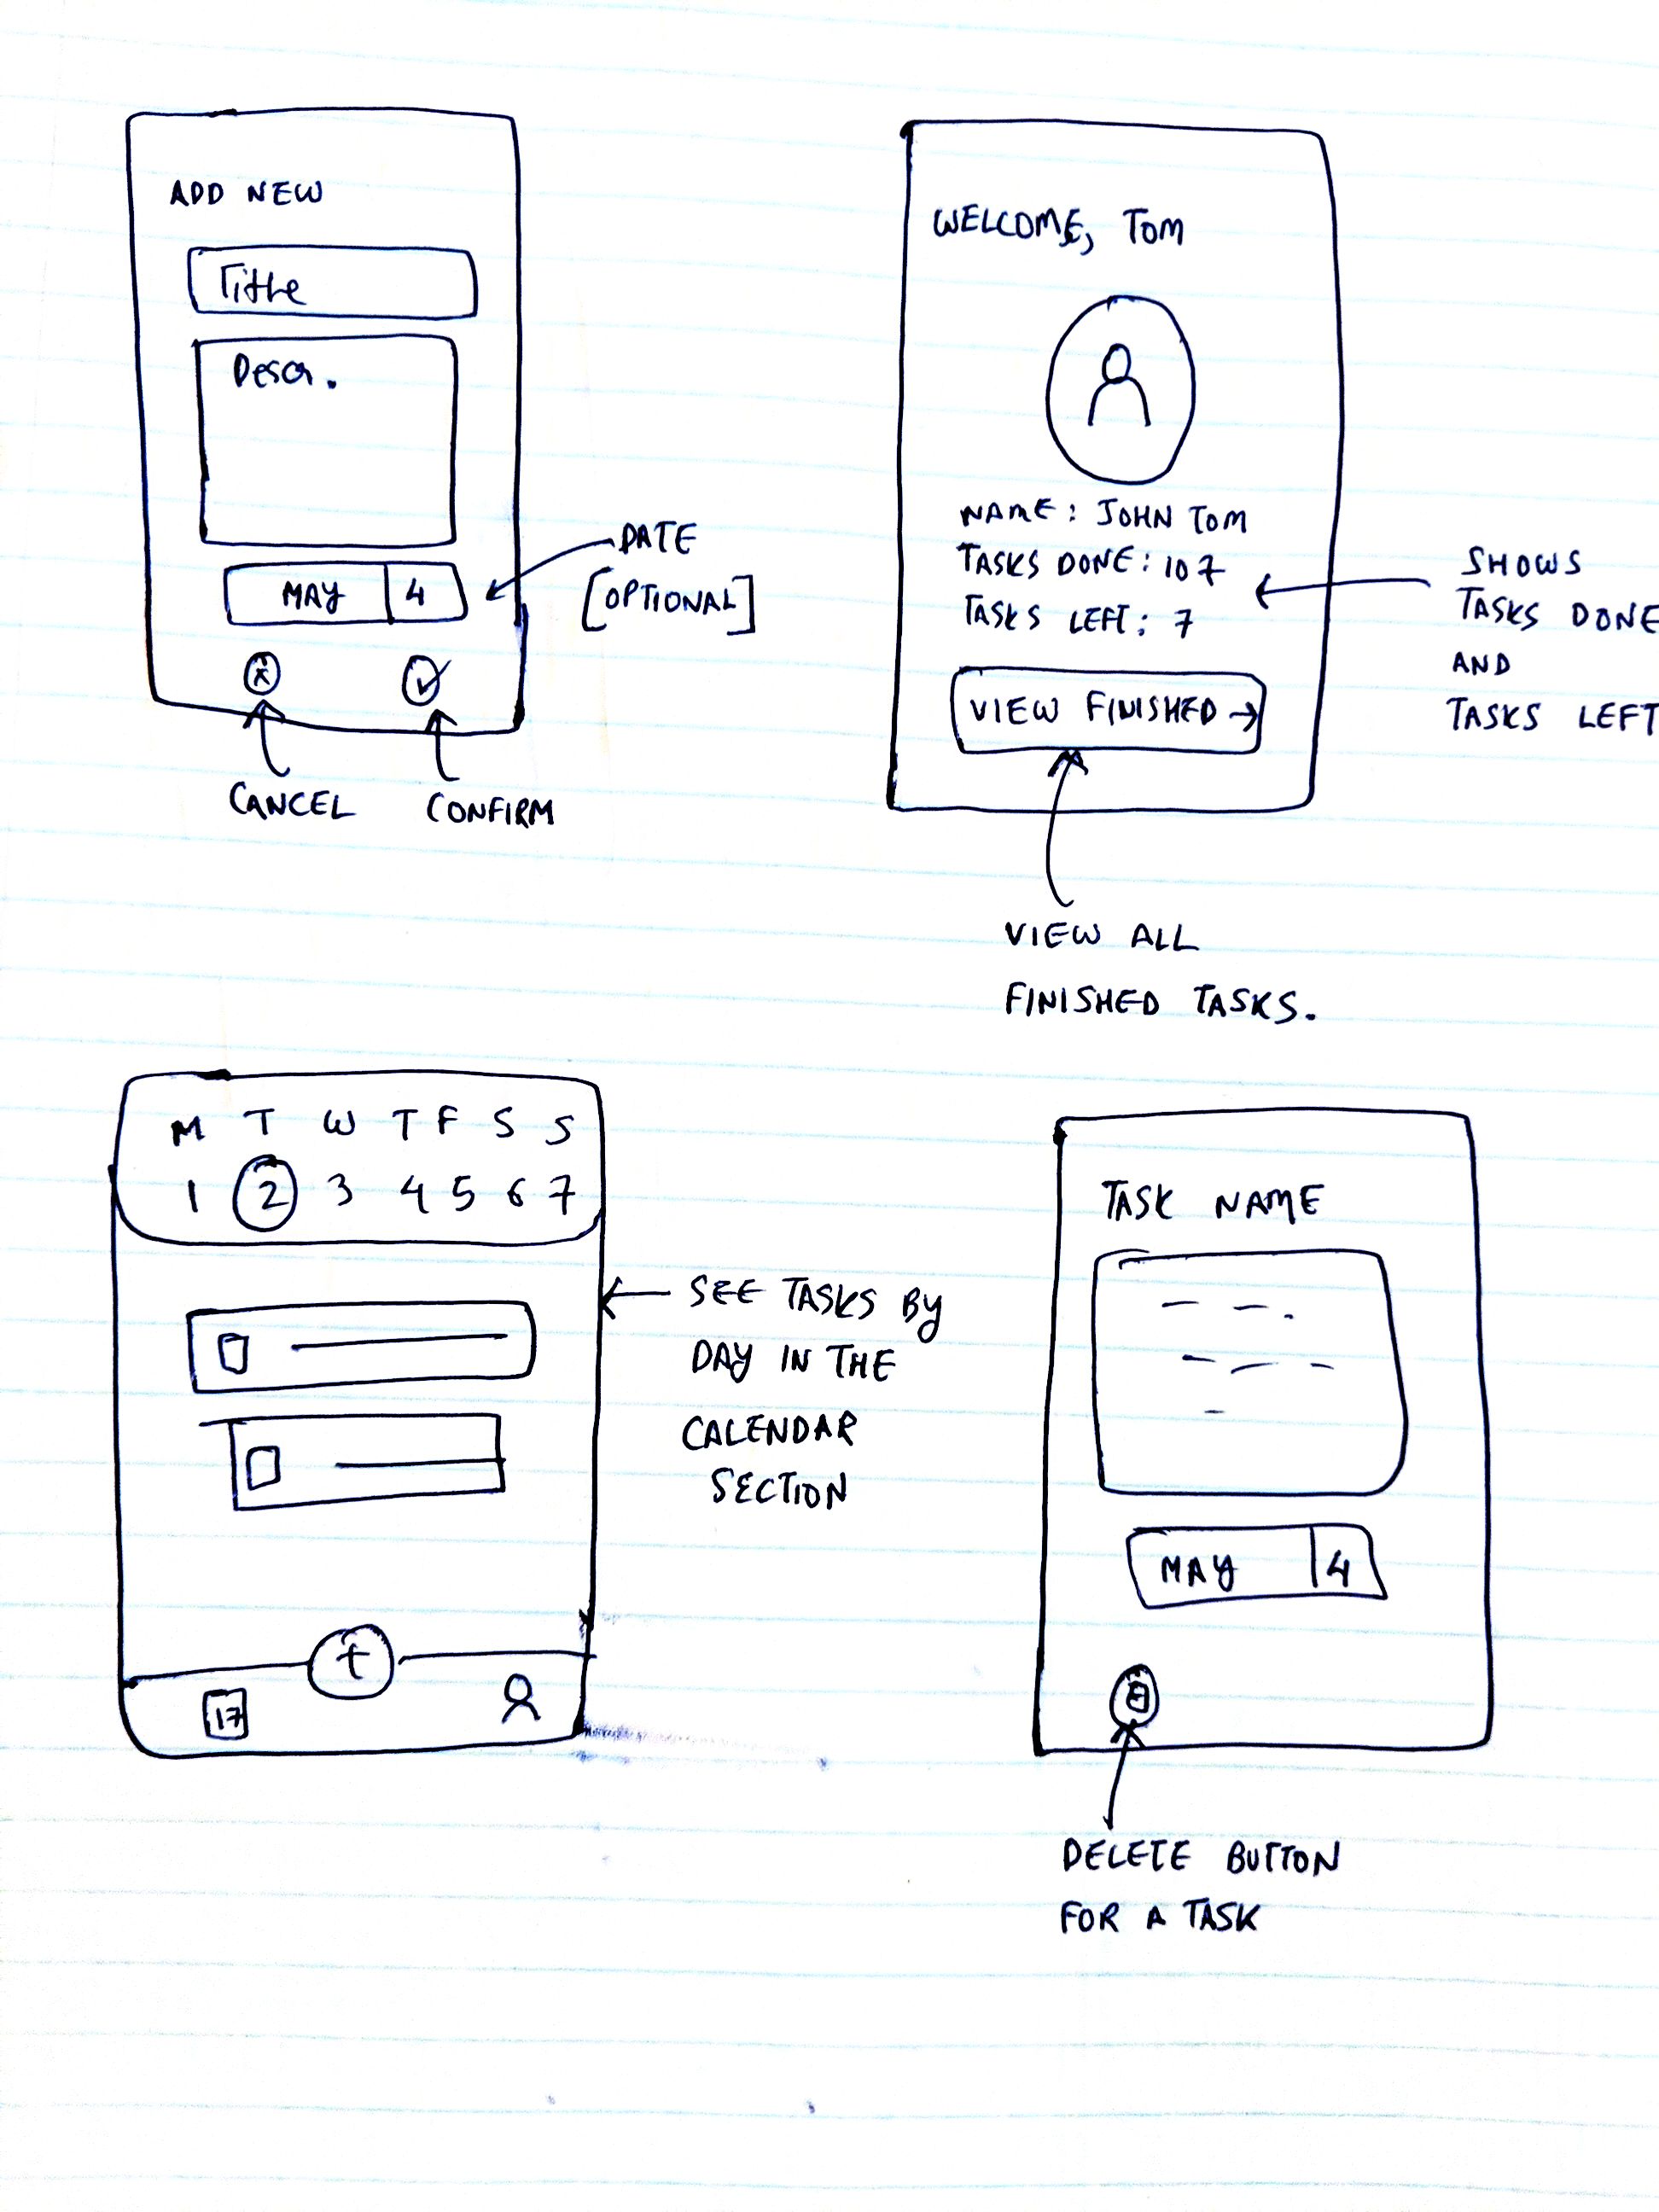 ADD NEW
Title
Descr.
MAY 4
DATE
[OPTIONAL]
CANCEL CONFIRM
WELCOME, TOM
NAME: JOHN TOM
TASKS DONE: 107
TASKS LEFT: 7
VIEW FINISHED →
SHOWS
TASKS DONE
AND
TASKS LEFT
VIEW ALL
FINISHED TASKS.
M T W T F S S
1 2 3 4 5 6 7
SEE TASKS BY
DAY IN THE
CALENDAR
SECTION
+
17
TASK NAME
MAY 4
DELETE BUTTON
FOR A TASK